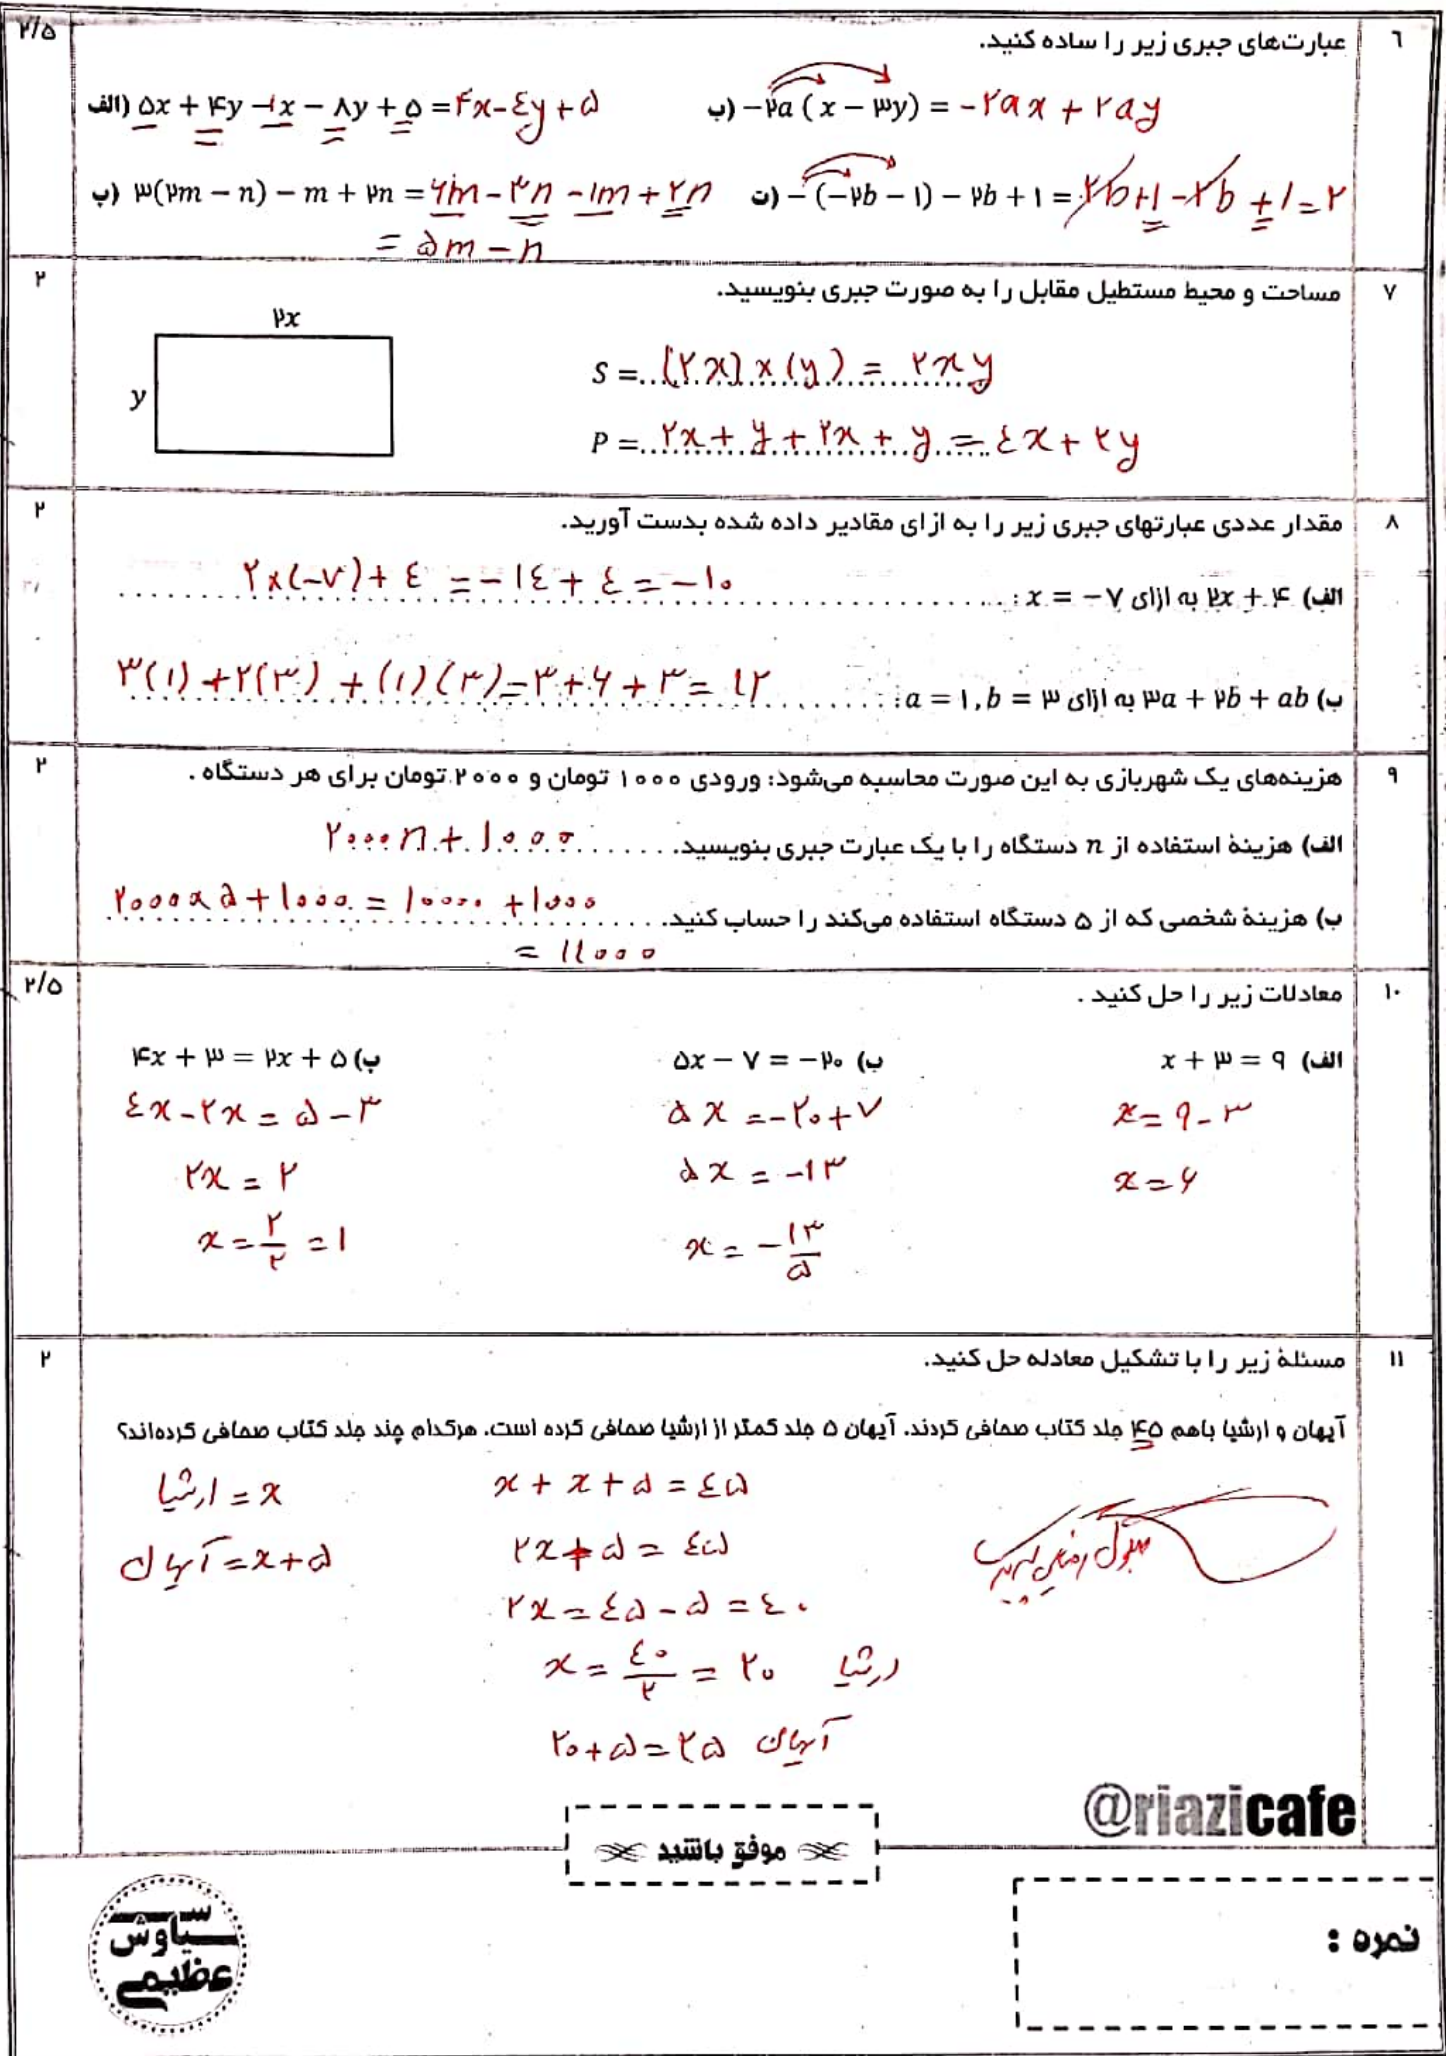 ۶ عبارت‌های جبری زیر را ساده کنید. ۲/۵
الف) ۵x + ۴y -۱x - ۸y + ۵ = ۴x - ٤y + ۵
ب) -۲a (x - ۳y) = -۲ax + ۲ay
پ) ۳(۲m - n) - m + ۲n = ۶m - ۳n - ۱m + ۲n
= ۵m - n
ت) -(-۲b - ۱) - ۲b + ۱ = ۲b + ۱ - ۲b + ۱ = ۲
۷ مساحت و محیط مستطیل مقابل را به صورت جبری بنویسید. ۲
۲x
y
S = (۲x) × (y) = ۲xy
P = ۲x + y + ۲x + y = ٤x + ۲y
۸ مقدار عددی عبارتهای جبری زیر را به ازای مقادیر داده شده بدست آورید. ۲
الف) ۲x + ۴ به ازای x = -۷ : ۲×(-۷) + ٤ = -۱٤ + ٤ = -۱۰
ب) ۳a + ۲b + ab به ازای a = ۱, b = ۳ : ۳(۱) + ۲(۳) + (۱)(۳) = ۳ + ۶ + ۳ = ۱۲
۹ هزینه‌های یک شهربازی به این صورت محاسبه می‌شود: ورودی ۱۰۰۰ تومان و ۲۰۰۰ تومان برای هر دستگاه . ۲
الف) هزینهٔ استفاده از n دستگاه را با یک عبارت جبری بنویسید. ۲۰۰۰n + ۱۰۰۰
ب) هزینهٔ شخصی که از ۵ دستگاه استفاده می‌کند را حساب کنید. ۲۰۰۰×۵ + ۱۰۰۰ = ۱۰۰۰۰ + ۱۰۰۰
= ۱۱۰۰۰
۱۰ معادلات زیر را حل کنید . ۲/۵
الف) x + ۳ = ۹
x = ۹ - ۳
x = ۶
ب) ۵x - ۷ = -۲۰
۵x = -۲۰ + ۷
۵x = -۱۳
x = -۱۳/۵
پ) ۴x + ۳ = ۲x + ۵
٤x - ۲x = ۵ - ۳
۲x = ۲
x = ۲/۲ = ۱
۱۱ مسئلهٔ زیر را با تشکیل معادله حل کنید. ۲
آیهان و ارشیا باهم ۴۵ جلد کتاب صحافی کردند. آیهان ۵ جلد کمتر از ارشیا صحافی کرده است. هرکدام چند جلد کتاب صحافی کرده‌اند؟
ارشیا = x
آیهان = x + ۵
x + x + ۵ = ٤۵
۲x + ۵ = ٤۵
۲x = ٤۵ - ۵ = ٤۰
x = ٤۰/۲ = ۲۰ ارشیا
۲۰ + ۵ = ۲۵ آیهان
@riazicafe
موفق باشید
سیاوش
عظیمی
نمره :